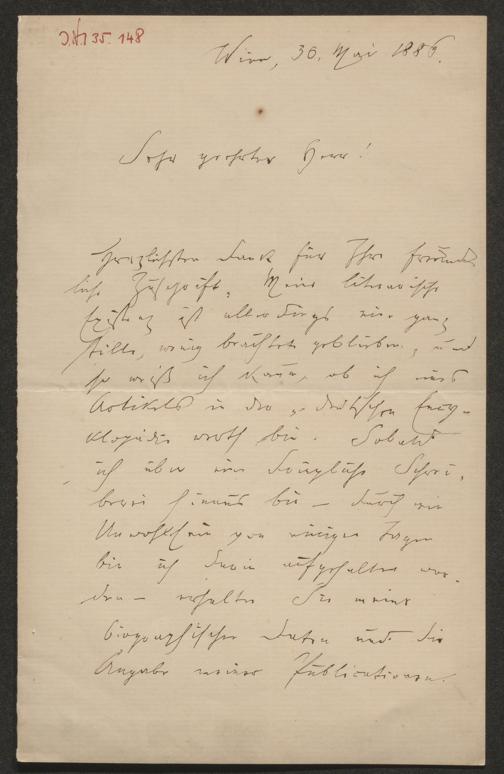 J.N. 35.148
Wien, 30. Mai 1886.
Sehr geehrter Herr!
Herzlichsten Dank für Ihre freund-
liche Zuschrift. Meine literarische
Existenz ist allerdings eine ganz
stille, wenig beachtete geblieben, und
so weiß ich kaum, ob ich eines
Artikels in der „deutschen Ency-
klopädie" werth bin. Sobald
ich über eine dringliche Schrei-
berei hinaus bin – durch ein
Unwohlsein von einigen Tagen
bin ich darin aufgehalten wor-
den – erhalten Sie meine
biographischen Daten und die
Angabe meiner Publicationen.